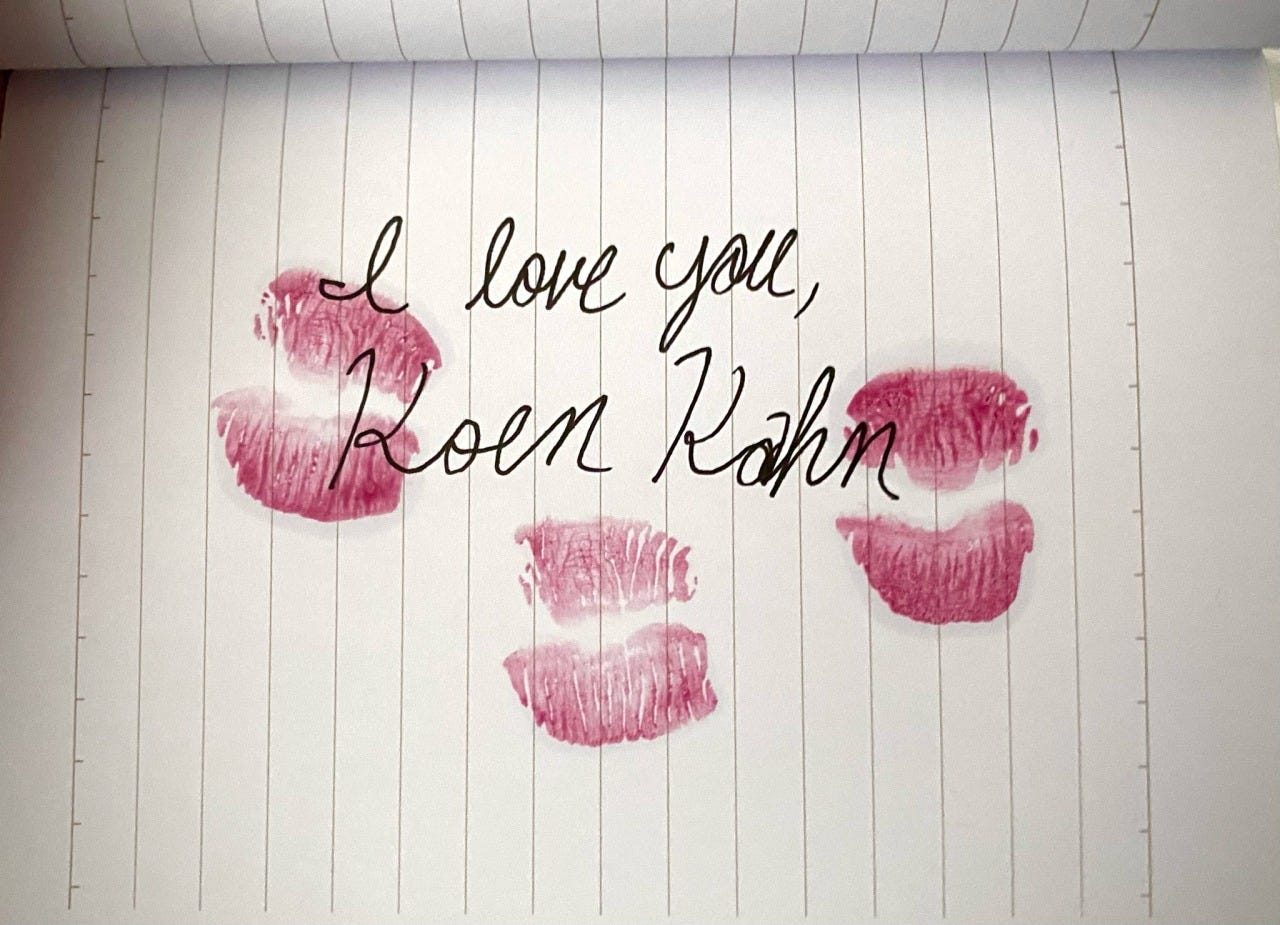 I love you,
Koen Kahn